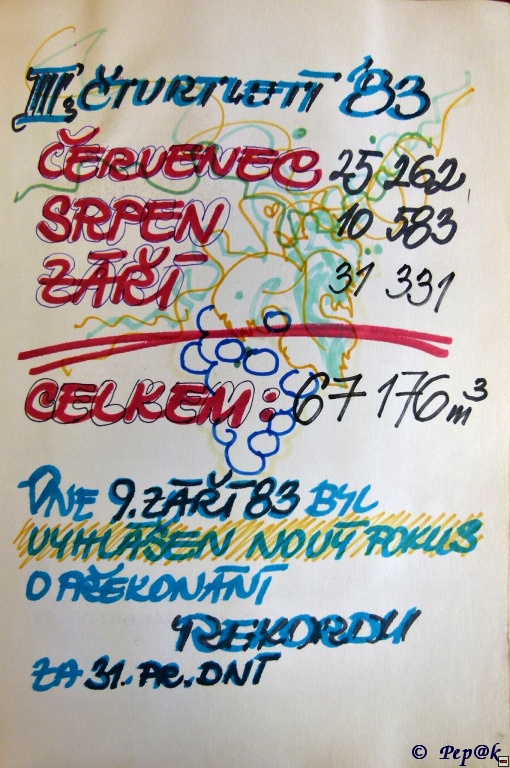 III. ČTVRTLETÍ '83
ČERVENEC 25 262
SRPEN 10 583
ZÁŘÍ 31 331
CELKEM: 67 176 m³
DNE 9. ZÁŘÍ 83 BYL
VYHLÁŠEN NOVÝ POKUS
O PŘEKONÁNÍ
REKORDU
ZA 31. PR. DNÍ
© Pep@k